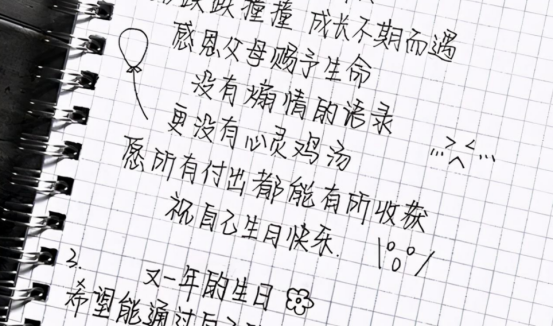 跌跌撞撞 成长不期而遇
感恩父母赐予生命
没有煽情的语录
更没有心灵鸡汤
愿所有付出都能有所收获
祝自己生日快乐.
3.
又一年的生日
希望能通过自己